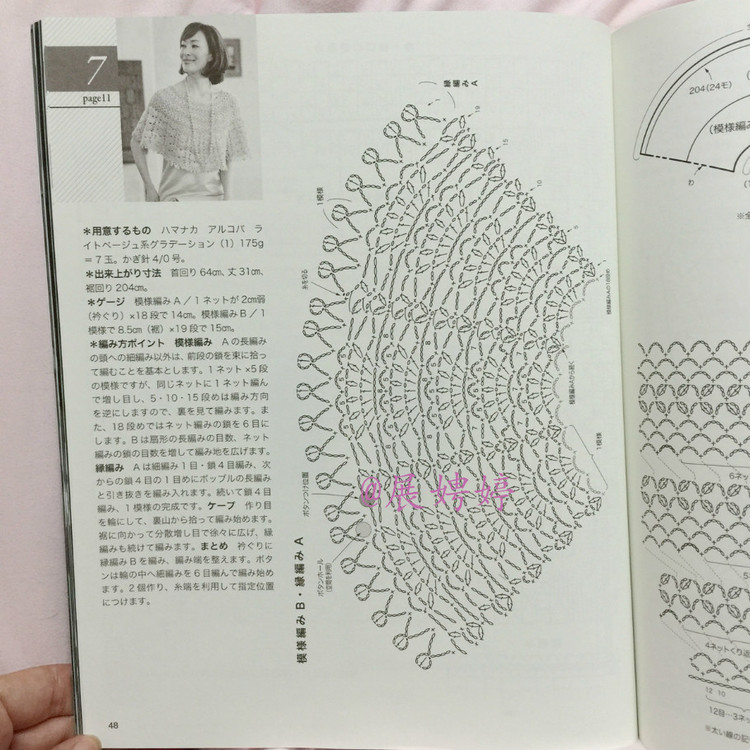 7
page11
＊用意するもの　ハマナカ　アルコバ　ラ
イトベージュ系グラデーション（1）175g
＝7玉。かぎ針4/0号。
＊出来上がり寸法　首回り64cm、丈31cm、
裾回り204cm。
＊ゲージ　模様編みA／1ネットが2cm弱
（衿ぐり）×18段で14cm。模様編みB／1
模様で8.5cm（裾）×19段で15cm。
＊編み方ポイント　模様編み　Aの長編み
の頭への細編み以外は、前段の鎖を束に拾っ
て編むことを基本とします。1ネット×5段
の模様ですが、同じネットに1ネット編ん
で増し目し、5・10・15段めは編み方向
を逆にしますので、裏を見て編みます。ま
た、18段めではネット編みの鎖を6目に
します。Bは扇形の長編みの目数、ネット
編みの鎖の目数を増して編み地を広げます。
縁編み　Aは細編み1目・鎖4目編み、次
からの鎖4目の1目めにポップルの長編み
と引き抜きを編み入れます。続いて鎖4目
編み、1模様の完成です。ケープ　作り目
を輪にして、裏山から拾って編み始めます。
裾に向かって分散増し目で徐々に広げ、縁
編みも続けて編みます。まとめ　衿ぐりに
縁編みBを編み、編み端を整えます。ボタ
ンは輪の中へ細編みを6目編んで編み始め
ます。2個作り、糸端を利用して指定位置
につけます。
48
模様編みB・縁編みA
縁編みA
1模様
糸を切る
ボタンつけ位置
ボタンホール
（空間を利用）
19
15
10
5
1
模様編みAから続く
1模様
@展娉婷
204（24モ）
（模様編み
わ
※全
6ネッ
4ネットくり返
12 10
12目−3ネッ
※太い線の記